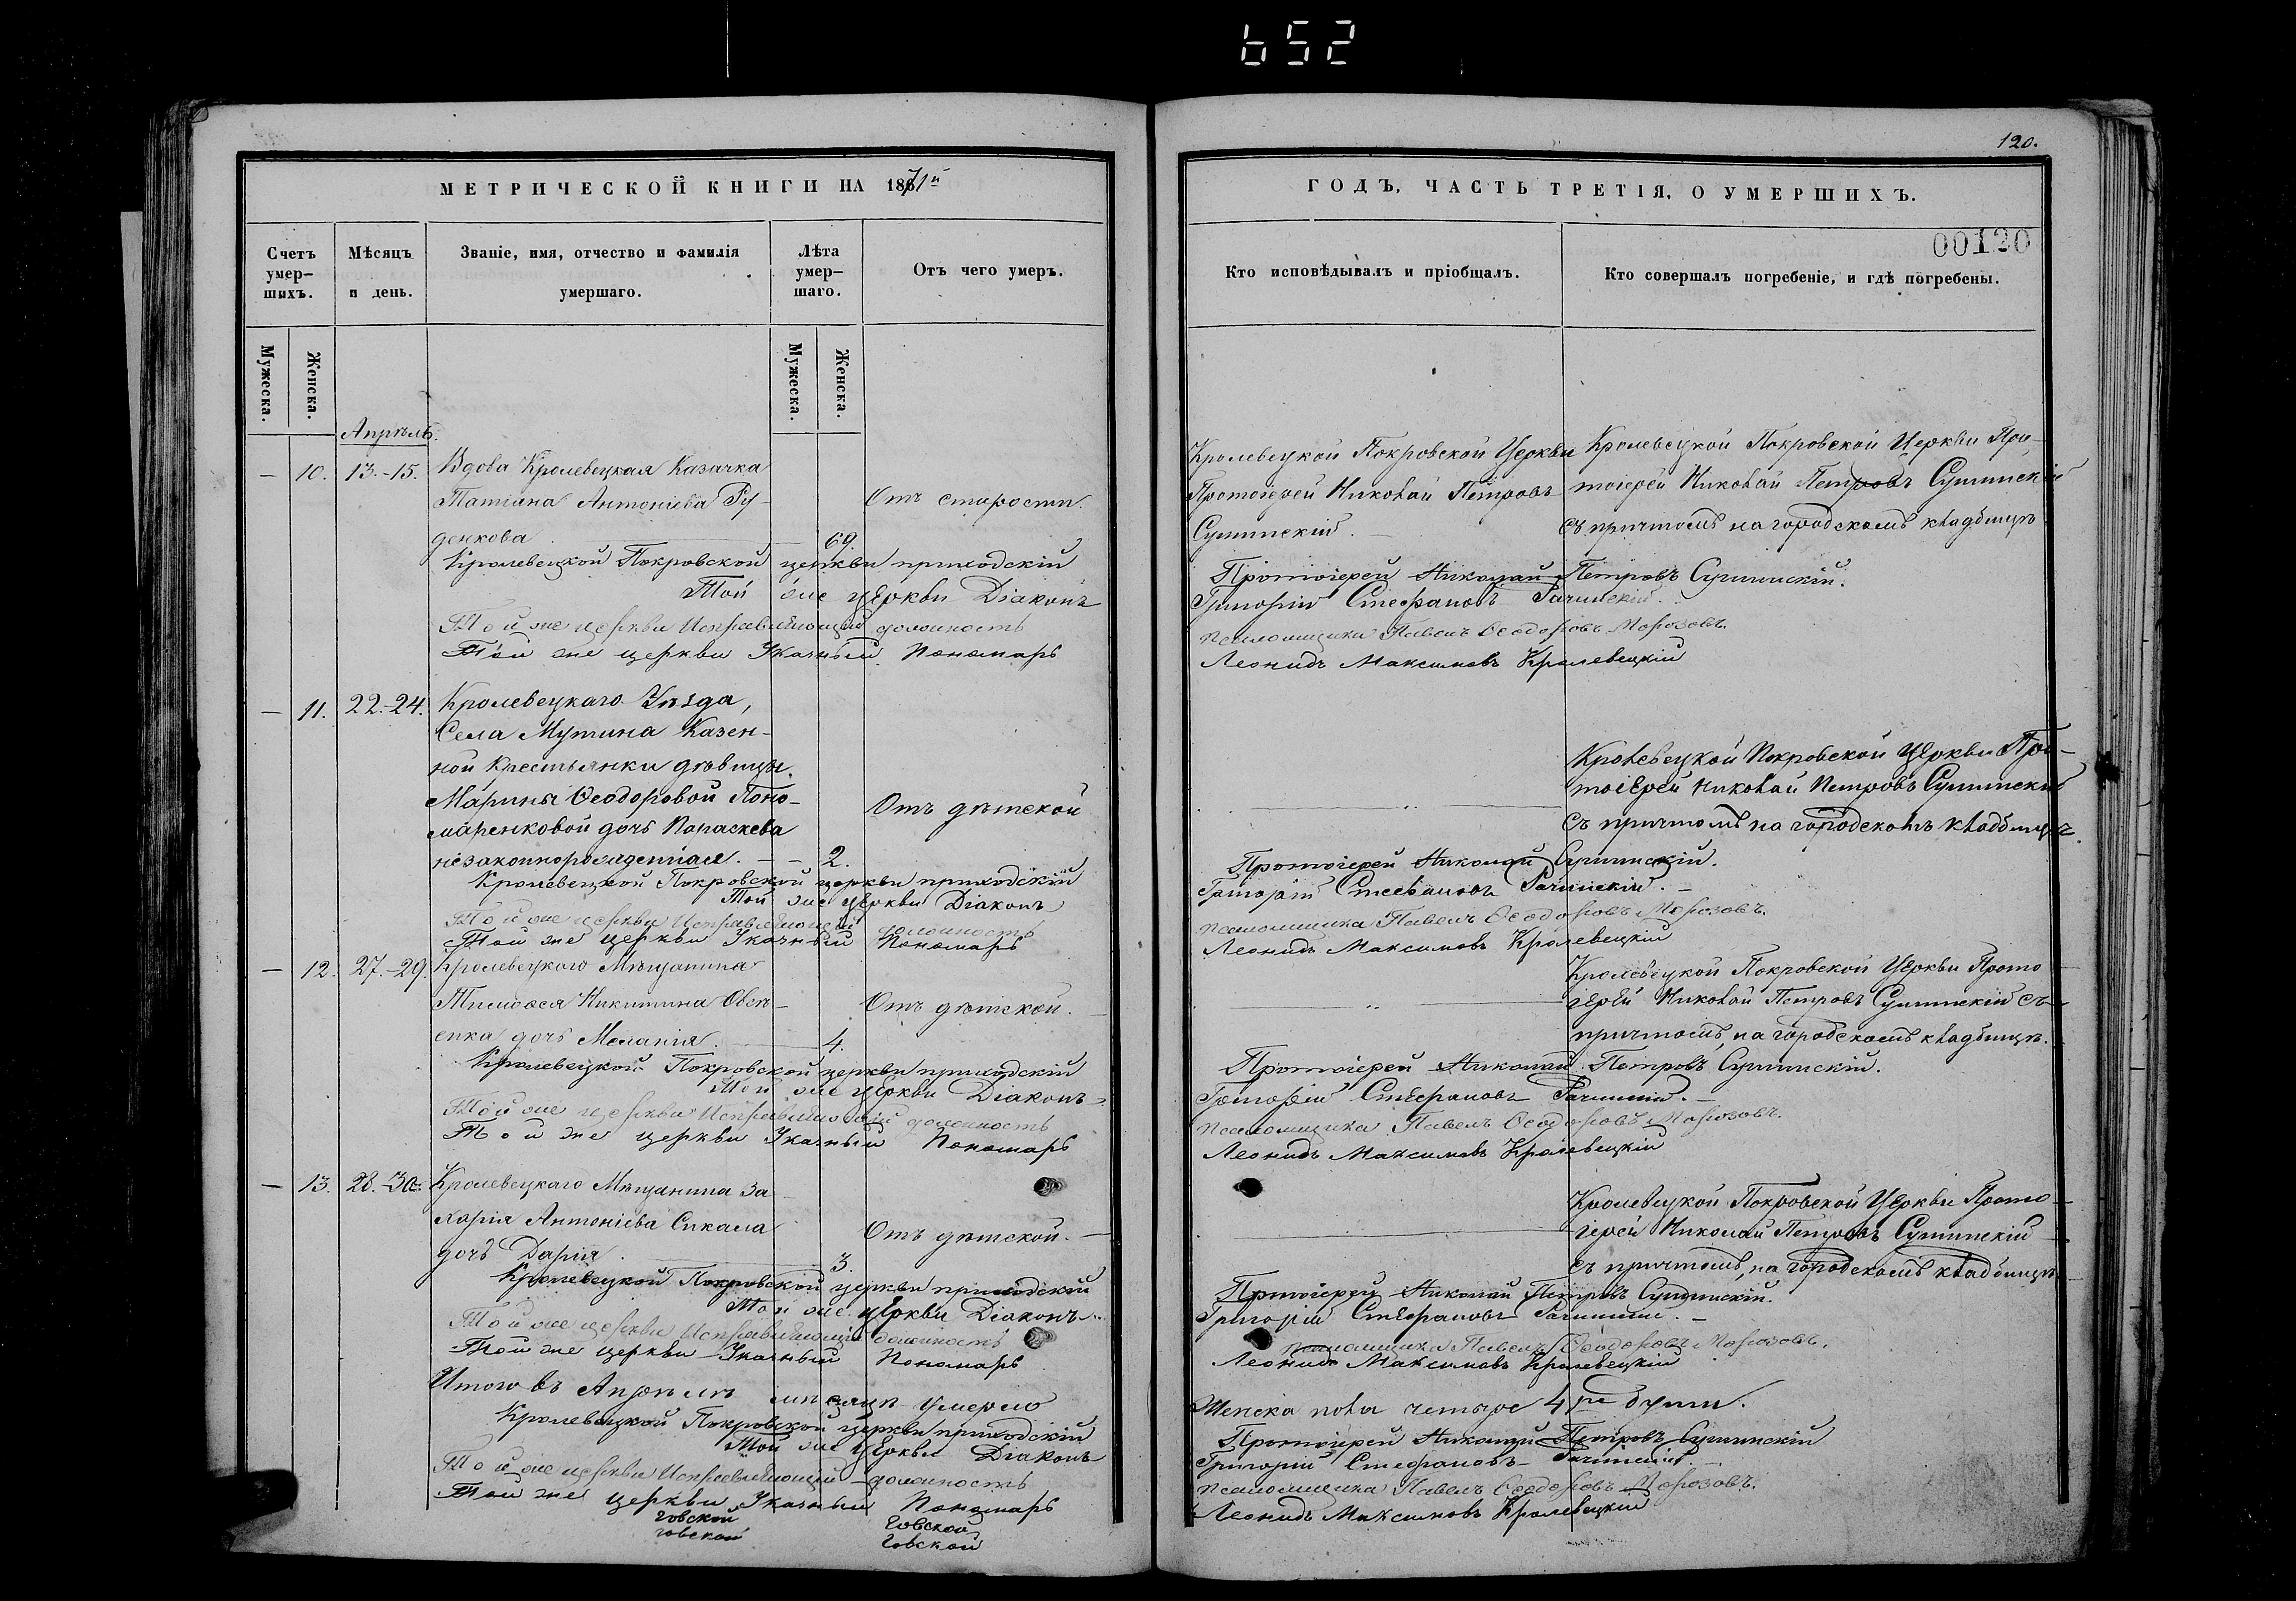 652
120.
МЕТРИЧЕСКОЙ КНИГИ НА 1871й
ГОДЪ, ЧАСТЬ ТРЕТІЯ, О УМЕРШИХЪ.
00120
Счетъ умер-шихъ.
Мѣсяцъ и день.
Званіе, имя, отчество и фамилія умершаго.
Лѣта умер-шаго.
Отъ чего умеръ.
Кто исповѣдывалъ и пріобщалъ.
Кто совершалъ погребеніе, и гдѣ погребены.
Мужеска.
Женска.
Мужеска.
Женска.
Апрѣль.
— 10. 13.-15. Вдова Кролевецкая Казачка
Татіана Антоніева Ру-
денкова. — 69.
Отъ старости.
Кролевецкой Покровской Церкви
Протоіерей Николай Петровъ
Сушинскій.
Кролевецкой Покровской Церкви Про-
тоіерей Николай Петровъ Сушинскій
съ причтомъ на городскомъ кладбищѣ
Кролевецкой Покровской церкви приходскій Протоіерей Николай Петровъ Сушинскій.
Той же церкви Діаконъ Григорій Стефановъ
Той же церкви Исправляющій должность псаломщика Павелъ Ѳеодоровъ Морозовъ.
Той же церкви Указный Пономарь Леонидъ Максимовъ Кролевецкій
— 11. 22.-24. Кролевецкаго Уѣзда,
Села Мутина Казен-
ной крестьянки дѣвицы
Марины Ѳеодоровой Поно-
маренковой дочь Параскева
незаконнорожденная. — — 2.
Отъ дѣтской
Кролевецкой Покровской Церкви Про-
тоіерей Николай Петровъ Сушинскій
съ причтомъ на городскомъ кладбищѣ.
Кролевецкой Покровской церкви приходскій Протоіерей Николай Сушинскій.
Той же церкви Діаконъ Григорій Стефановъ
Той же церкви Исправляющій должность псаломщика Павелъ Ѳеодоровъ Морозовъ.
Той же церкви Указный Пономарь Леонидъ Максимовъ Кролевецкій
— 12. 27.-29. Кролевецкого Мѣщанина
Тимоѳея Никитина Овсѣ-
енка дочь Меланія. — 4.
Отъ дѣтской.
Кролевецкой Покровской Церкви Прото
іерей Николай Петровъ Сушинскій съ
причтомъ, на городскомъ кладбищѣ.
Кролевецкой Покровской церкви приходскій Протоіерей Николай Петровъ Сушинскій.
Той же церкви Діаконъ Григорій Стефановъ
Той же церкви Исправляющій должность псаломщика Павелъ Ѳеодоровъ Морозовъ.
Той же церкви Указный Пономарь Леонидъ Максимовъ Кролевецкій
— 13. 28.-30. Кролевецкаго Мѣщанина За
харія Антоніева Сикала
дочь Дарія. — 3.
Отъ дѣтской. —
Кролевецкой Покровской Церкви Прото-
іерей Николай Петровъ Сушинскій
съ причтомъ, на городскомъ кладбищѣ
Кролевецкой Покровской церкви приходскій Протоіерей Николай Петровъ Сушинскій.
Той же церкви Діаконъ Григорій Стефановъ
Той же церкви Исправляющій должность псаломщика Павелъ Ѳеодоровъ Морозовъ.
Той же церкви Указный Пономарь Леонидъ Максимовъ Кролевецкій
Итого въ Апрѣлѣ мѣсяцѣ умерло Женска пола четыре 4ре души.
Кролевецкой Покровской церкви приходскій Протоіерей Николай Петровъ Сушинскій
Той же церкви Діаконъ Григорій Стефановъ
Той же церкви Исправляющій должность псаломщика Павелъ Ѳеодоровъ Морозовъ.
Той же церкви Указный Пономарь Леонидъ Максимовъ Кролевецкій
говской говской
говской говской